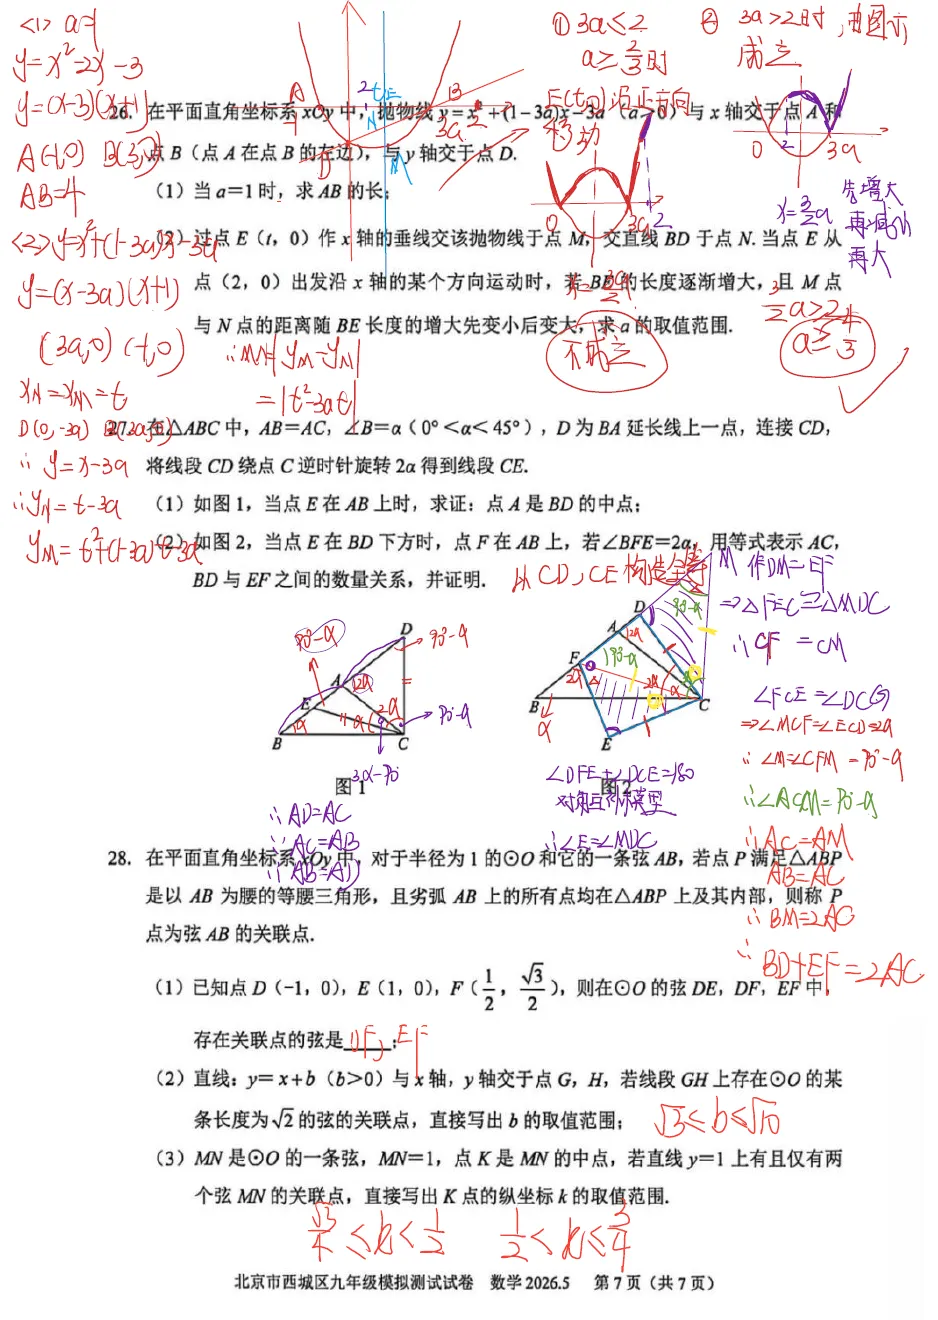 <1> a=1
y=x²-2x-3
y=(x-3)(x+1)
A(-1,0) B(3,0)
AB=4
① 3a≤2
a≥2/3时
E(t,0)沿正方向
移动
② 3a>2时,由图示
成立
26. 在平面直角坐标系 xOy 中,抛物线 y=x²+(1-3a)x-3a(a>0)与 x 轴交于点 A 和
点 B(点 A 在点 B 的左边),与 y 轴交于点 D.
(1)当 a=1 时,求 AB 的长;
(2)过点 E(t,0)作 x 轴的垂线交该抛物线于点 M,交直线 BD 于点 N. 当点 E 从
点(2,0)出发沿 x 轴的某个方向运动时,若 BE 的长度逐渐增大,且 M 点
与 N 点的距离随 BE 长度的增大先变小后变大,求 a 的取值范围.
<2> y=x²+(1-3a)x-3a
y=(x-3a)(x+1)
(3a,0) (-1,0)
x_N=x_M=t
D(0,-3a) B(3a,0)
∴ y=x-3a
∴ y_N=t-3a
y_M=t²+(1-3a)t-3a
∴MN=|y_M-y_N|
=|t²-3at|
不成立
x=3/2a
先增大
再减小
再大
3/2a>2
a>4/3
27. 在△ABC 中,AB=AC,∠B=α(0°<α<45°),D 为 BA 延长线上一点,连接 CD,
将线段 CD 绕点 C 逆时针旋转 2α 得到线段 CE.
(1)如图 1,当点 E 在 AB 上时,求证:点 A 是 BD 的中点;
(2)如图 2,当点 E 在 BD 下方时,点 F 在 AB 上,若∠BFE=2α,用等式表示 AC,
BD 与 EF 之间的数量关系,并证明.
从CD,CE构造全等
M 作DM=EF
⇒△FEC≌△MDC
∴CF=CM
∠FCE=∠DCM
⇒∠MCF=∠ECD=2α
∴∠M=∠CFM=90°-α
∴∠ACM=90°-α
∴AC=AM
AB=AC
∴BM=2AC
∴BD+EF=2AC
90°-α
D
90°-α
A
2α
E
2α
α
α
90°-α
B
C
3α-90°
图 1
∴AD=AC
∵AC=AB
∴AB=AD
D
A
2α
90°-α
F
90°-α
2α
2α
α
B
C
α
E
图 2
∠DFE+∠DCE=180
对角互补模型
∴∠E=∠MDC
28. 在平面直角坐标系 xOy 中,对于半径为 1 的⊙O 和它的一条弦 AB,若点 P 满足△ABP
是以 AB 为腰的等腰三角形,且劣弧 AB 上的所有点均在△ABP 上及其内部,则称 P
点为弦 AB 的关联点.
(1)已知点 D(-1,0),E(1,0),F(1/2,√3/2),则在⊙O 的弦 DE,DF,EF 中,
存在关联点的弦是 DF,EF ;
(2)直线:y=x+b(b>0)与 x 轴,y 轴交于点 G,H,若线段 GH 上存在⊙O 的某
条长度为√2 的弦的关联点,直接写出 b 的取值范围;
√3≤b≤√10
(3)MN 是⊙O 的一条弦,MN=1,点 K 是 MN 的中点,若直线 y=1 上有且仅有两
个弦 MN 的关联点,直接写出 K 点的纵坐标 k 的取值范围.
√3/4≤k<1/2 1/2<k≤3/4
北京市西城区九年级模拟测试试卷 数学 2026.5 第 7 页(共 7 页)